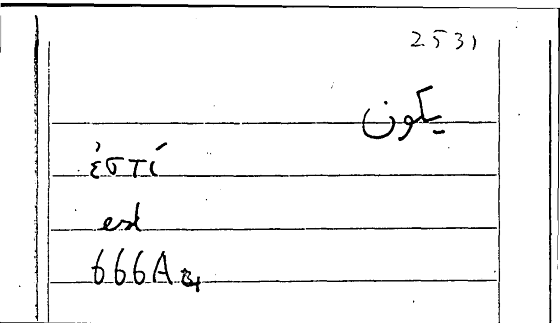 2531
يكون
ἐστί
est
666A24